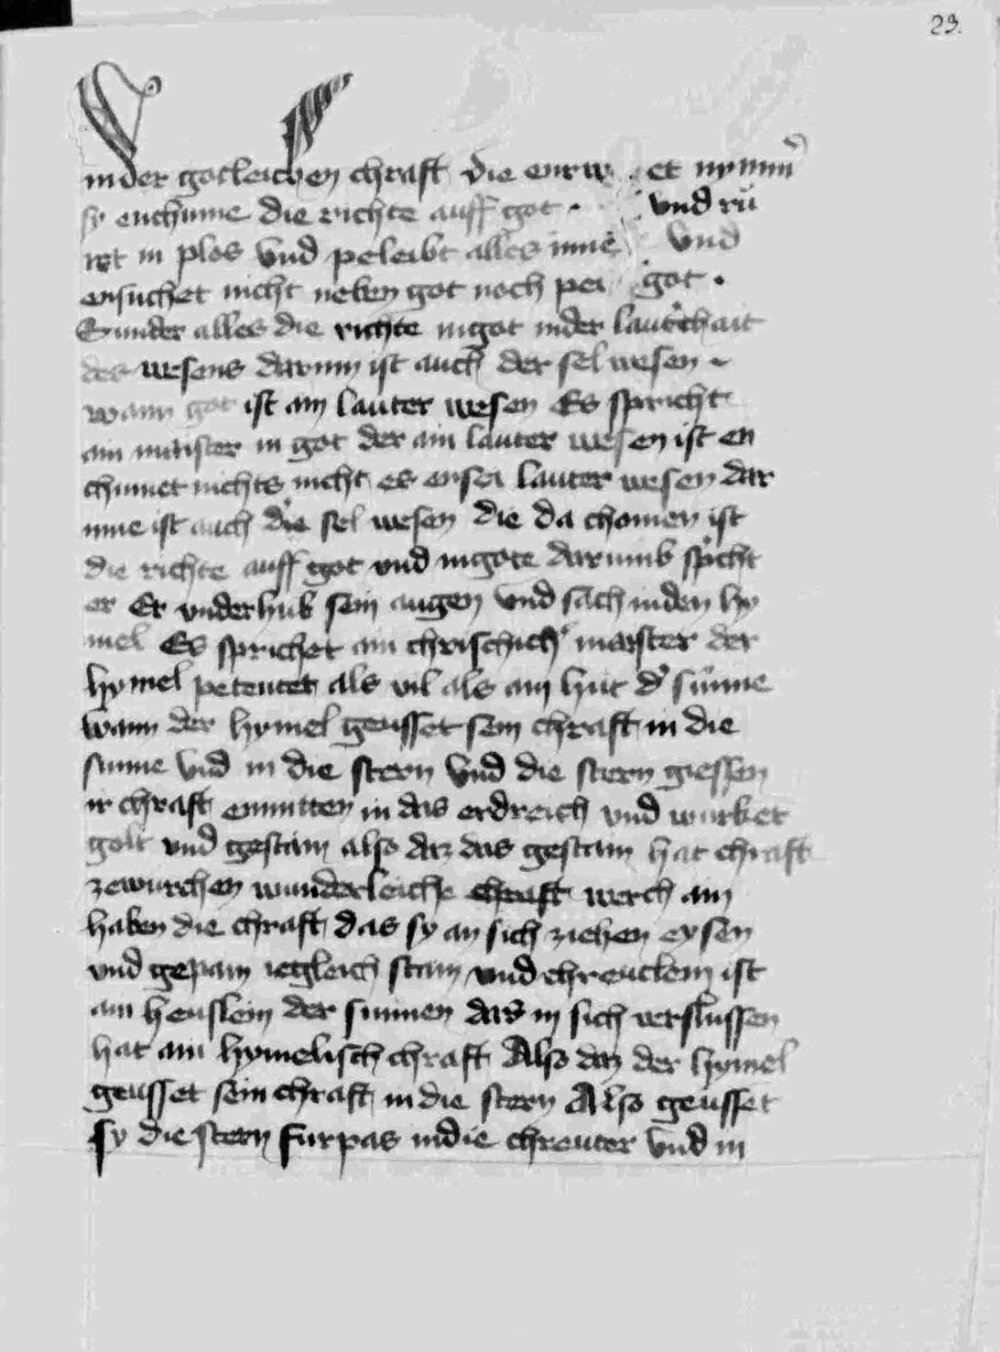 23.
in der gotleichen chraft die enrw et nymm̄
sy enchume die richte auff got · vnd rů
wt in plos vnd peleibt alles inne vnd
ensuchet nicht neben got noch pei got ·
Sunder alles die richte in got in der lautˀchait
des wesens darinn ist auch der sel wesen ·
wann got ist ain lauter wesen Es spricht
ain maister in got der ain lauter wesen ist en
chumet nichts nicht es ensei lauter wesen dar
inne ist auch die sel wesen die da chomen ist
die richte auff got vnd in gote darumb spͥcht
er Er vnderhub sein augen vnd sach in den hy
mel Es sprichet ain chrischichˀ maister der
hymel peteutet als vil als ain hut dˀ sunne
wann der hymel geusset sein chraft in die
sunne vnd in die stern vnd die stern giessen
ir chraft enmitten in das erdreich vnd wurket
golt vnd gestain also daz das gestain hat chraft
zewurchen wunderleiche chraft werch ain
haben die chraft das sy an sich ziehen eysen
vnd gepain ietgleich stain vnd chreutlein ist
ain heuslein der sunnen das in sich verslussen
hat ain hymelisch chraft Also daz der hymel
geusset sein chraft in die stern Also geusset
sy die stern furpas in die chreuter vnd in